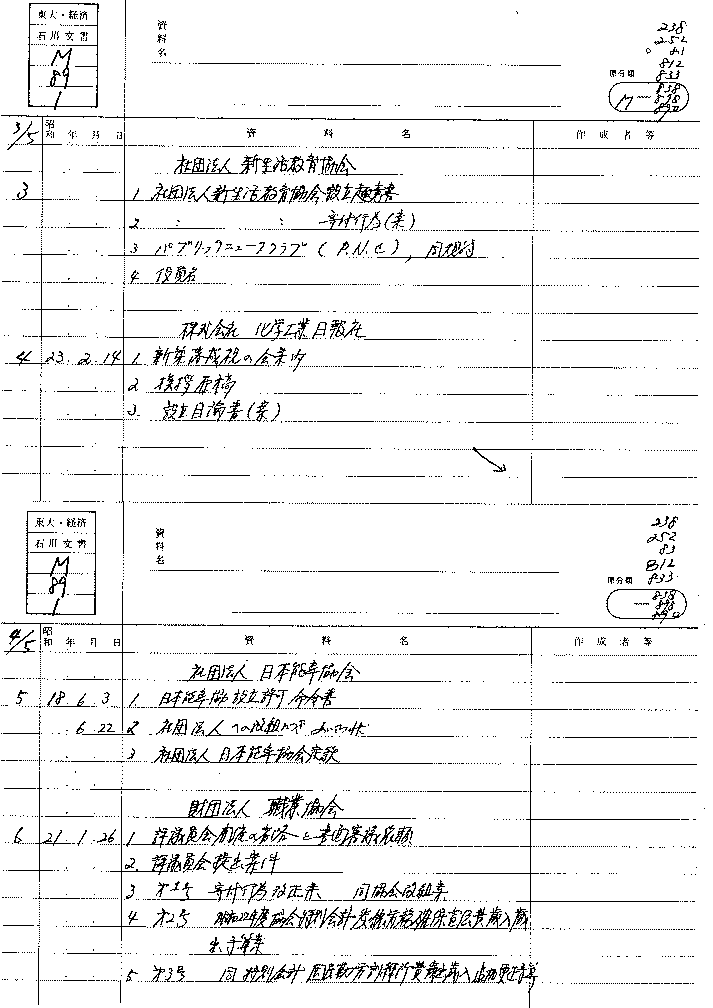 東大・経済
石川文書
M
89
1
資料名
238
252
81
812
833
原分類
838
17 — 898
890
3/5
昭和 年 月 日 資料名 作成者等
社団法人 新生活教育協会
3 1 社団法人新生活教育協会設立趣意書
2 〃 〃 寄付行為(案)
3 パブリックニュースクラブ (P.N.C), 同規約
4 役員名
株式会社 化学工業日報社
4 23. 2. 14 1 新築落成祝の会案内
2 挨拶原稿
3. 設立目論書(案)
東大・経済
石川文書
M
89
1
資料名
238
252
83
812
原分類 833
838
— 898
890
4/5
昭和 年 月 日 資料名 作成者等
社団法人 日本能率協会
5 18 6 3 1 日本能率協設立許可命令書
6 22 2 社団法人への改組
3 社団法人 日本能率協会定款
財団法人 職業協会
6 21 1 26 1 評議員会
2. 評議員会提出案件
3 才1号 寄付行為改正案 同協会改組案
4 才2号 協会特別会計 歳入歳
出予算案
5 才3号 同 特別会計